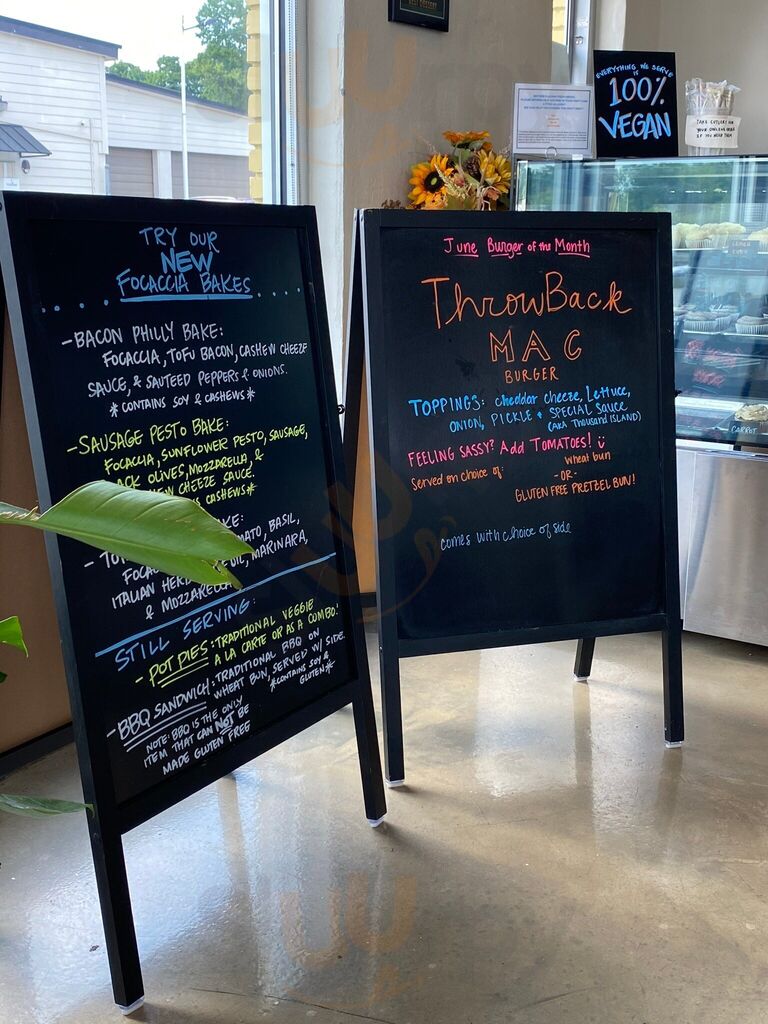 TRY OUR
NEW
FOCACCIA BAKES
- BACON PHILLY BAKE:
FOCACCIA, TOFU BACON, CASHEW CHEEZE
SAUCE, & SAUTEED PEPPERS & ONIONS.
*CONTAINS SOY & CASHEWS*
- SAUSAGE PESTO BAKE:
FOCACCIA, SUNFLOWER PESTO, SAUSAGE,
ACK OLIVES, MOZZARELLA, &
EW CHEEZE SAUCE.
CASHEWS*
KE:
FOCA MATO, BASIL,
ITALIAN HER OIL, MARINARA,
& MOZZARE
STILL SERVING:
- POT PIES: TRADITIONAL VEGGIE
A LA CARTE OR AS A COMBO!
- BBQ SANDWICH: TRADITIONAL BBQ ON
WHEAT BUN, SERVED W/ SIDE.
*CONTAINS SOY &
GLUTEN*
NOTE: BBQ IS THE ONLY
ITEM THAT CAN NOT BE
MADE GLUTEN FREE
June Burger of the Month
ThrowBack
MAC
BURGER
TOPPINGS: cheddar cheeze, Lettuce,
ONION, PICKLE + SPECIAL SAUCE
(AKA THOUSAND ISLAND)
FEELING SASSY? Add TOMATOES!
Served on choice of: wheat bun
-OR-
GLUTEN FREE PRETZEL BUN!
comes with choice of side
EVERYTHING WE SERVE
IS
100%
VEGAN
TAKE CUTLERY OR
IF YOU NEED THEM
CARROT